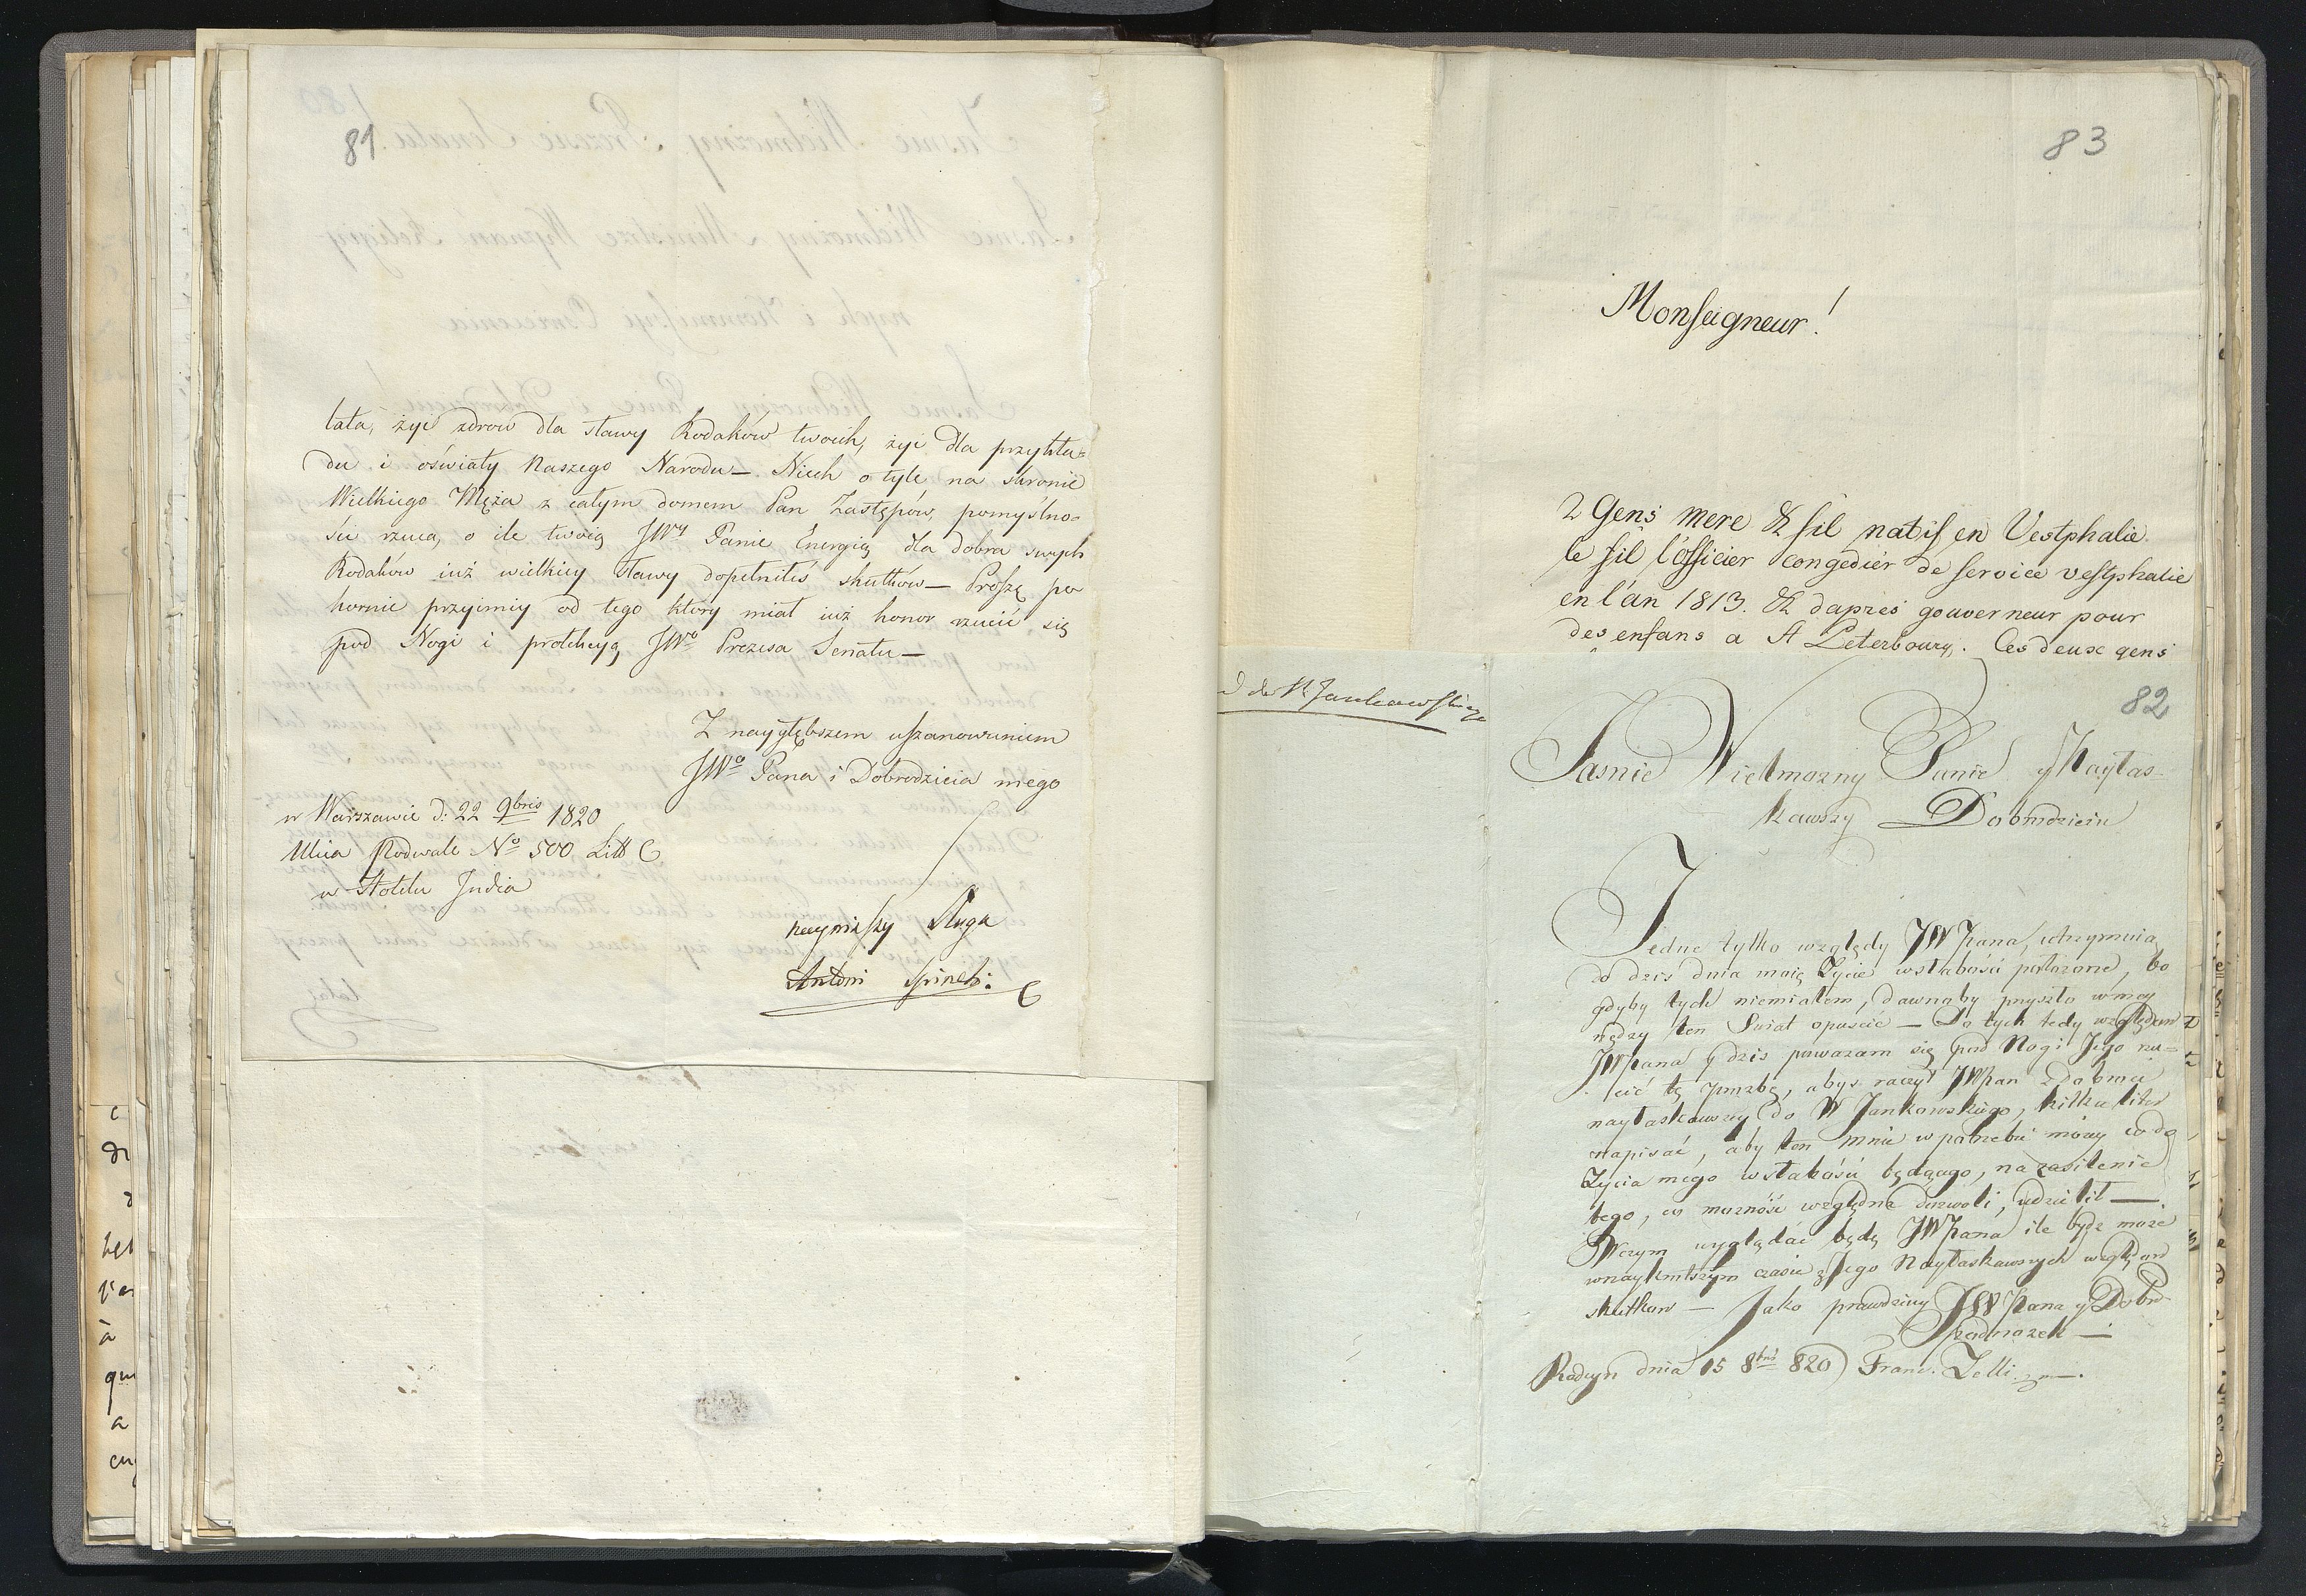 81
lata, żyć zdrow dla sławy Rodaków twoich, żyć dla przykła=
du i oświaty Naszego Narodu — Niech o tyle na skronie
Wielkiego Męża z całym domem Pan Zastępów, pomyślno=
ści rzuca, o ile twoią JWy Panie Energią dla dobra swych
Rodaków iuż wielkiey sławy dopełniłeś skutków — Proszę po
kornie przyimiy od tego który miał iuż honor rzucić się
pod Nogi i protekcyą JWo Prezesa Senatu —
Z naygłębszem uszanowaniem
JWo Pana i Dobrodzieia mego
w Warszawie d: 22 9bris 1820
Ulica Podwale No 500 Litt C
w Hotelu India
nayniższy Sługa
Antoni
83
Monseigneur!
2 Gens mere & fil natif en Vestphalie
le fil l'officier congedier de service vestphalie
en l'án 1813. & daprés gouverneur pour
des enfans a St Peterbourg. Ces deux gens
82
Jasnie Wielmozny Panie y Naylas=
kawszy Dobrodzieiu
Jedne tylko względy JWPana, utrzymuią
do dzis dnia moię Zycie w słabości położone, bo
gdyby tych niemiałem, dawnoby przyszło w mey
nędzy ten Swiat opuscić — Do tych tedy względow
JWPana y dzis poważam się pod Nogi Jego rzu=
cić tę prozbę, abys raczył JWPan z dobroci
nayłaskawszey do W Jankowskiego, kilka liter
napisać, aby ten mnie w potrzebie moiey co do
Zycia mego w słabości będącego, na zasilenie
tego, co możność względna dozwoli, udzielił —
Wczym wyglądać będę JWPana ile bydz może
w nayknotszym czasie z Jego Nayłaskawszych względow
skutkow — Jako prawdziwy JWPana y Dobr
Podnozek —
Radzyn dnia 15 8bris 820) Franc. Zelli